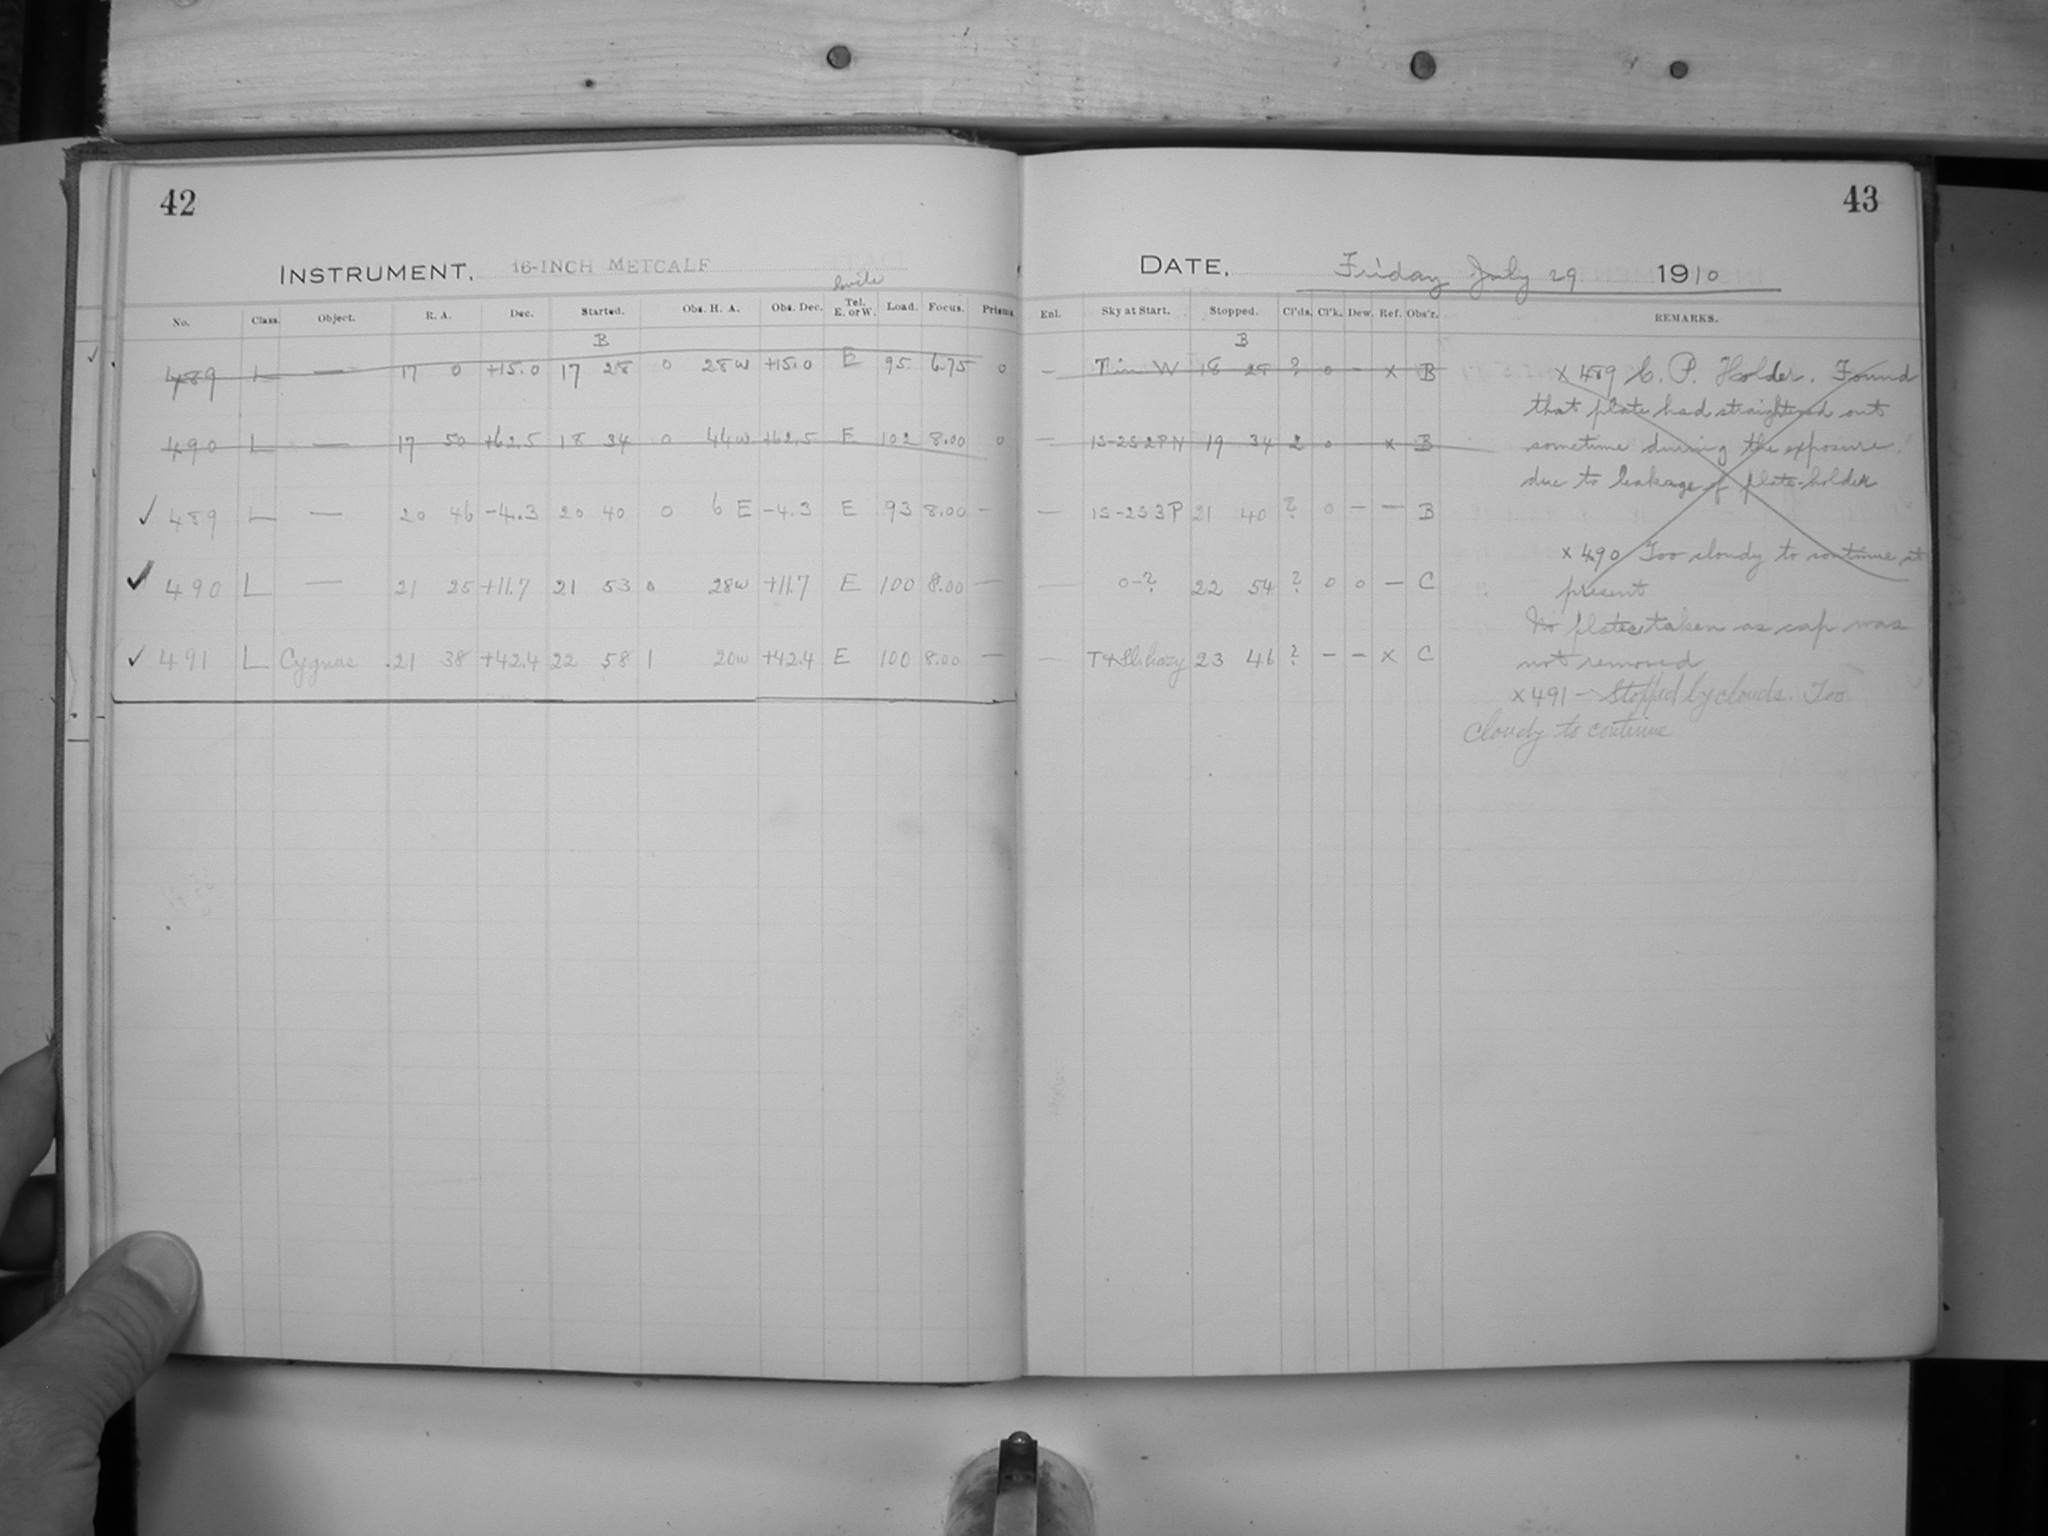 42
INSTRUMENT. 16-INCH METCALF
No. Class. Object. R. A. Dec. Started. Obs. H. A. Obs. Dec. Tel. E. or W. Load. Focus. Prisms.
B
489 L — 17 0 +15.0 17 28 0 28w +15.0 E 95 6.75 0
490 L — 17 50 +62.5 18 34 0 44w +62.5 E 102 8.00 0
✓ 489 L — 20 46 -4.3 20 40 0 6 E -4.3 E 93 8.00 —
✓ 490 L — 21 25 +11.7 21 53 0 28w +11.7 E 100 8.00 —
✓ 491 L Cygnus 21 38 +42.4 22 58 1 20w +42.4 E 100 8.00 —
43
DATE. Friday July 29 1910
Enl. Sky at Start. Stopped. Cl'ds. Cl'k. Dew. Ref. Obs'r. REMARKS.
B
— W 18 28 ? 0 - x B
— 1S-2S2PN 19 34 2 0 x B
— 1S-2S3P 21 40 ? 0 — — B
— 0-? 22 54 ? 0 0 — C
— 23 46 ? — — x C
x 489 C. P. Holder. Found
that plate had straightened out
sometime during the exposure.
due to leakage of plate-holder
x 490 Too cloudy to continue at
present
No plates taken as cap was
not removed
x 491 — Stopped by clouds. Too
Cloudy to continue